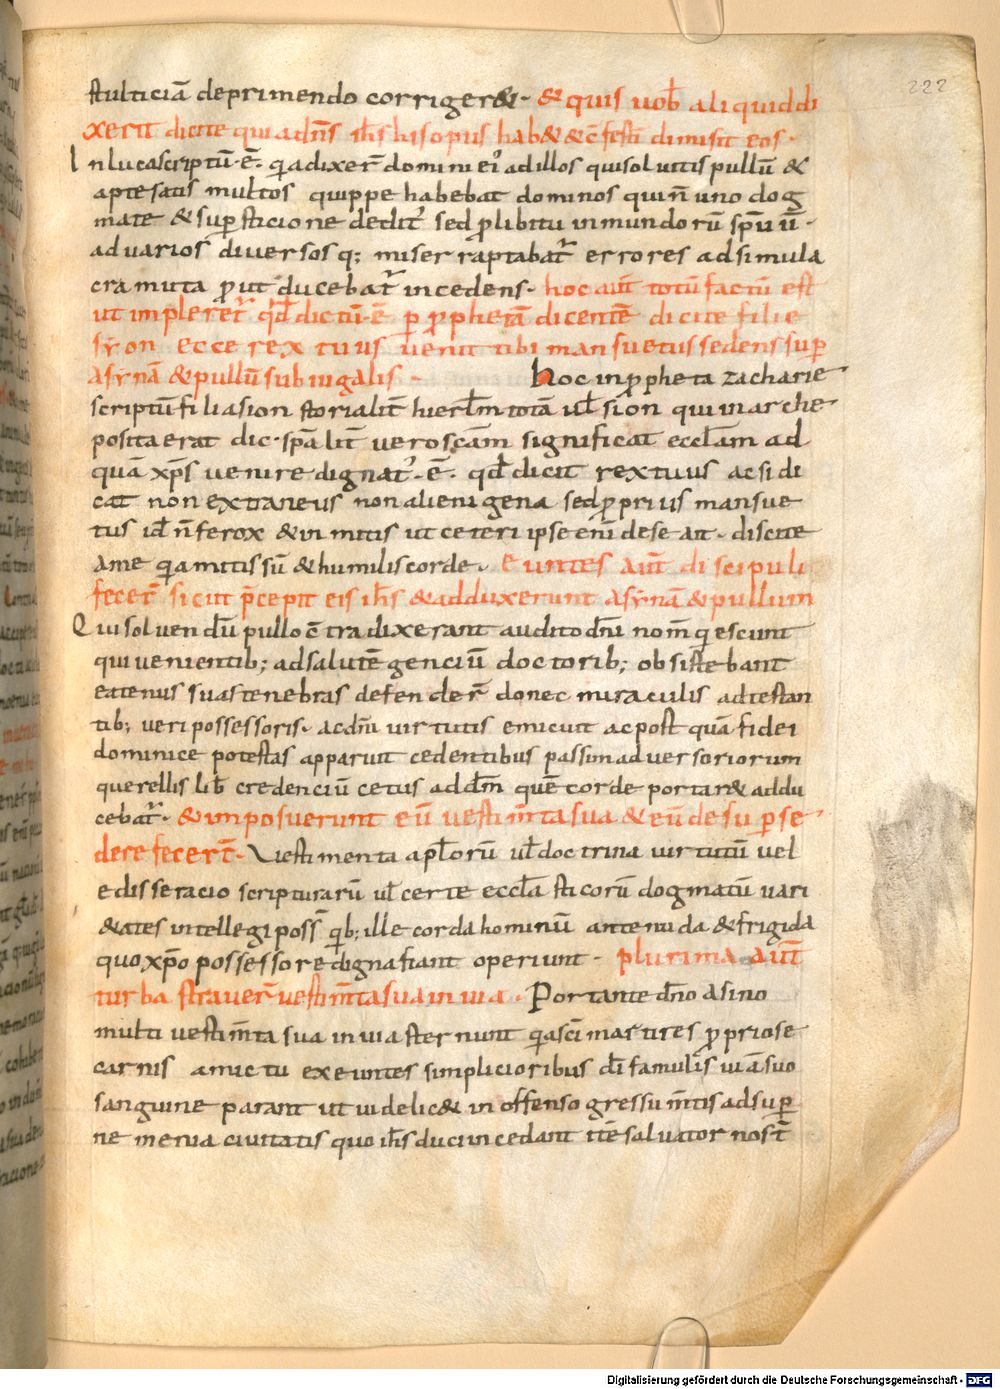 222
stulticiā deprimendo corriger&. & quis uob̄ aliquid di
xerit dicite quia dn̄s ih̄s his opus hab& & c̄festī dimisit eos.
In luca scriptū. ē. q̄a dixer̄ domini ei' ad illos qui soluitis pullū &
apte satis multos quippe habebat dominos qui n̄ uno dog
mate & sup̄sticione dedit' sed p̄ libitu inmundorū sp̄uū.
ad uarios diuersosq; miser raptabat̄ errores ad simula
cra muta p̄ut ducebat̄ incedens. hoc aūt totū factū est
ut impleret̄ qd̄ dictū. ē p̄ p̄phetā dicentē dicite filie
syon ecce rex tuus uenit tibi mansuetus sedens sup̄
asynā & pullū subiugalis. hoc in p̄pheta zacharie
scriptū filia sion storialit̄ hierlm̄ tota ul̄ sion qui in arche
posita erat dic. sp̄alit̄ uero sc̄am significat eccl̄am ad
quā xp̄s uenire dignat'. ē. qd̄ dicit rex tuus ac si di
cat non extraneus non alienigena sed p̄prius mansue
tus id̄ n̄ ferox & inmitis ut ceteri ipse eni de se ait. discite
a me q̄a mitis sū & humilis corde. Euntes aūt discipuli
fecer̄ sicut p̄cepit eis ih̄s & adduxerunt asynā & pullum
Qui soluendū pullo c̄tradixerant audito dn̄i nom̄ q̄escunt
qui uenientib; ad salutē genciū doctorib; obsistebant
eatenus suas tenebras defender̄ donec miraculis adtestan
tib; ueri possessoris. ac dn̄i uirtutis emicuit ac post quā fidei
dominice potestas apparuit cedentibus passim aduersoriorum
querellis lib̄ credenciū cetus ad dm̄ quē corde portar& addu
cebat̄. & imposuerunt eū uestim̄ta sua & eū desup̄ se
dere fecer̄t. Uestimenta apl̄orū ul̄ doctrina uirtutū uel
edisseracio scripturarū ul̄ certe eccl̄asticorū dogmatū uari
&ates intellegi poss̄ q̄b; ille corda hominū ante nuda & frigida
quo xp̄o possessore digna fiant operiunt. plurima aūt
turba strauer̄ uestim̄ta sua in uia. Portante dn̄o asino
multi uestim̄ta sua in uia sternunt q̄a sc̄i martires p̄priose
carnis amictu exeuntes simplicioribus dī famulis uiā suo
sanguine parant ut uidelic& inoffenso gressu m̄tis ad sup̄
ne menia ciuitatis quo ih̄s duci incedant itē saluator nost̄
Digitalisierung gefördert durch die Deutsche Forschungsgemeinschaft - DFG